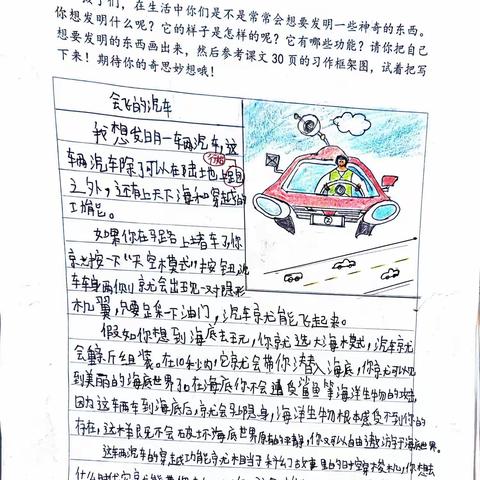 孩子们，在生活中你们是不是常常会想要发明一些神奇的东西。
你想发明什么呢？它的样子是怎样的呢？它有哪些功能？请你把自己
想要发明的东西画出来，然后参考课文30页的习作框架图，试着把写
下来！期待你的奇思妙想哦！
会飞的汽车
我想发明一辆汽车，这
辆汽车除了可以在陆土地上
行驶
之外，还有上天下海和穿越的
功能。
如果你在马路上堵车了，你
就按下“天空模式”按钮，
车身两侧就会出现一对隐形
机翼，只要踩一下油门，汽车就能飞起来。
假如你想到海底去玩，你就选大海模式，汽车就
会重新组装。在10秒内，它就会带你潜入海底，你就可以见
到美丽的海底世界了。在海底你不会遭受鲨鱼等海洋生物的攻击，
因为这车到海底后，就会马上隐身，海洋生物根本感受不到你的
存在，这样就不会破坏海底世界原有的平静，你又可以自由遨游于海底世界。
这车辆汽车的穿越功能就相当于科幻故事里的时空穿梭机，你想去
什么时代它就能带你去